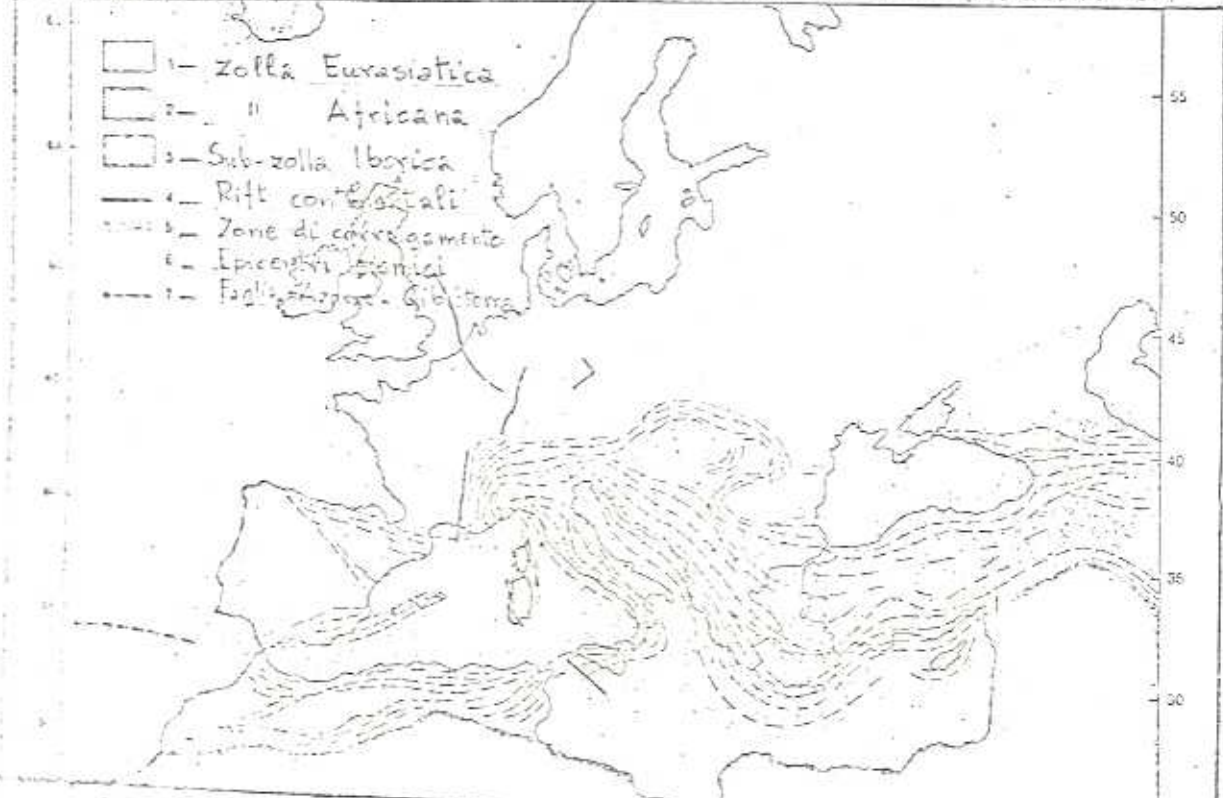 1— Zolla Eurasiatica
2— " Africana
3— Sub-zolla Iberica
4— Rift continentali
5— Zone di corrugamento
6— Epicentri sismici
7— Faglia Azzorre-Gibilterra
55
50
45
40
35
30